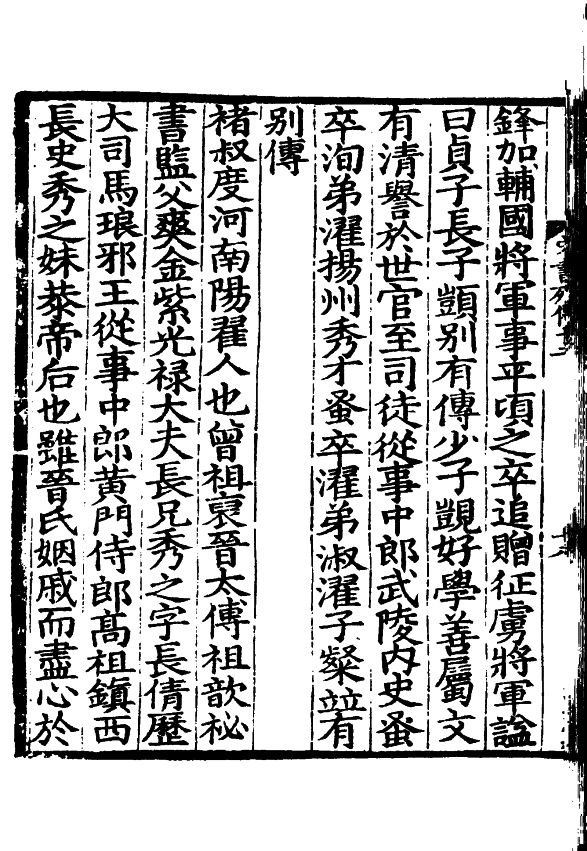 鋒加輔國將軍事平頃之卒追贈征虜將軍謚
曰貞子長子顗别有傳少子覬好學善屬文
有清譽於世官至司徒從事中郎武陵内史蚤
卒洵弟濯揚州秀才蚤卒濯弟淑濯子粲竝有
别傳
褚叔度河南陽翟人也曾祖裒晉太傅祖歆秘
書監父爽金紫光禄大夫長兄秀之字長倩歷
大司馬琅邪王從事中郎黄門侍郎髙祖鎮西
長史秀之妹恭帝后也雖晉氏姻戚而盡心於